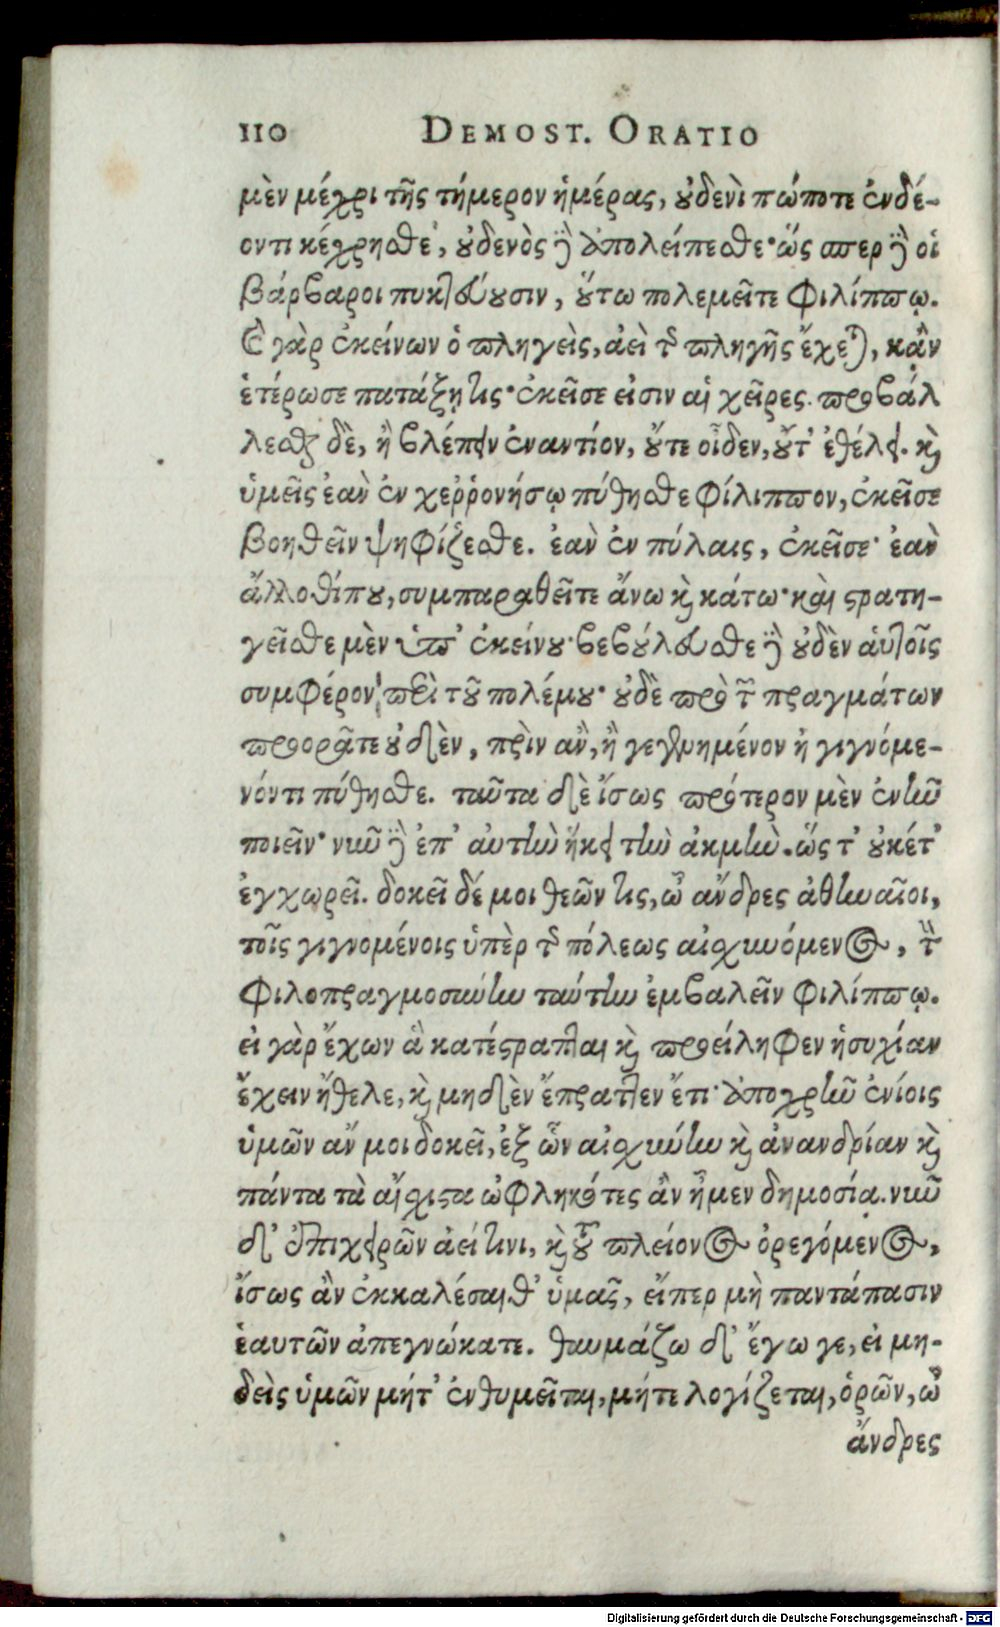 110 DEMOST. ORATIO
μὲν μέχρι τῆς τήμερον ἡμέρας, οὐδενὶ πώποτε ἐνδέ-
οντι κέχρησθε, οὐδενὸς δὲ ἀπολείπεσθε· ὥς περ δὲ οἱ
βάρβαροι πυκτεύουσιν, οὕτω πολεμεῖτε Φιλίππῳ.
καὶ γὰρ ἐκείνων ὁ πληγεὶς, ἀεὶ τῆς πληγῆς ἔχεται, κᾂν
ἑτέρωσε πατάξῃ τις· ἐκεῖσε εἰσιν αἱ χεῖρες. προβάλ
λεσθαι δὲ, ἢ βλέπειν ἐναντίον, οὔτε οἶδεν, οὔτ' ἐθέλει. καὶ
ὑμεῖς ἐὰν ἐν χεῤῥονήσῳ πύθησθε Φίλιππον, ἐκεῖσε
βοηθεῖν ψηφίζεσθε. ἐὰν ἐν πύλαις, ἐκεῖσε· ἐὰν
ἄλλοθί που, συμπαραθεῖτε ἄνω καὶ κάτω· καὶ στρατη-
γεῖσθε μὲν ὑπ' ἐκείνου· βεβούλευσθε δὲ οὐδὲν αὐτοῖς
συμφέρον περὶ τοῦ πολέμου· οὐδὲ πρὸ τῶν πραγμάτων
προορᾶτε οὐδὲν, πρὶν ἂν, ἢ γεγενημένον ἢ γιγνόμε-
νόν τι πύθησθε. ταῦτα δὲ ἴσως πρότερον μὲν ἐνῆν
ποιεῖν· νῦν δὲ ἐπ' αὐτὴν ἥκει τὴν ἀκμὴν. ὥς τ' οὐκέτ'
ἐγχωρεῖ. δοκεῖ δέ μοι θεῶν τις, ὦ ἄνδρες ἀθηναῖοι,
τοῖς γιγνομένοις ὑπὲρ τῆς πόλεως αἰσχυνόμενος, τὴν
Φιλοπραγμοσύνην ταύτην ἐμβαλεῖν Φιλίππῳ.
εἰ γὰρ ἔχων ἃ κατέστραπται καὶ προείληφεν ἡσυχίαν
ἔχειν ἤθελε, καὶ μηδὲν ἔπραττεν ἔτι· ἀποχρῆν ἐνίοις
ὑμῶν ἄν μοι δοκεῖ, ἐξ ὧν αἰσχύνην καὶ ἀνανδρίαν καὶ
πάντα τὰ αἴσχιστα ὠφληκότες ἂν ἦμεν δημοσίᾳ. νῦν
δ' ἐπιχειρῶν ἀεί τινι, καὶ τοῦ πλείονος ὀρεγόμενος,
ἴσως ἂν ἐκκαλέσαιθ' ὑμᾶς, εἴπερ μὴ παντάπασιν
ἑαυτῶν ἀπεγνώκατε. θαυμάζω δ' ἔγωγε, εἰ μη-
δεὶς ὑμῶν μήτ' ἐνθυμεῖται, μήτε λογίζεται, ὁρῶν, ὦ
ἄνδρες
Digitalisierung gefördert durch die Deutsche Forschungsgemeinschaft - DFG